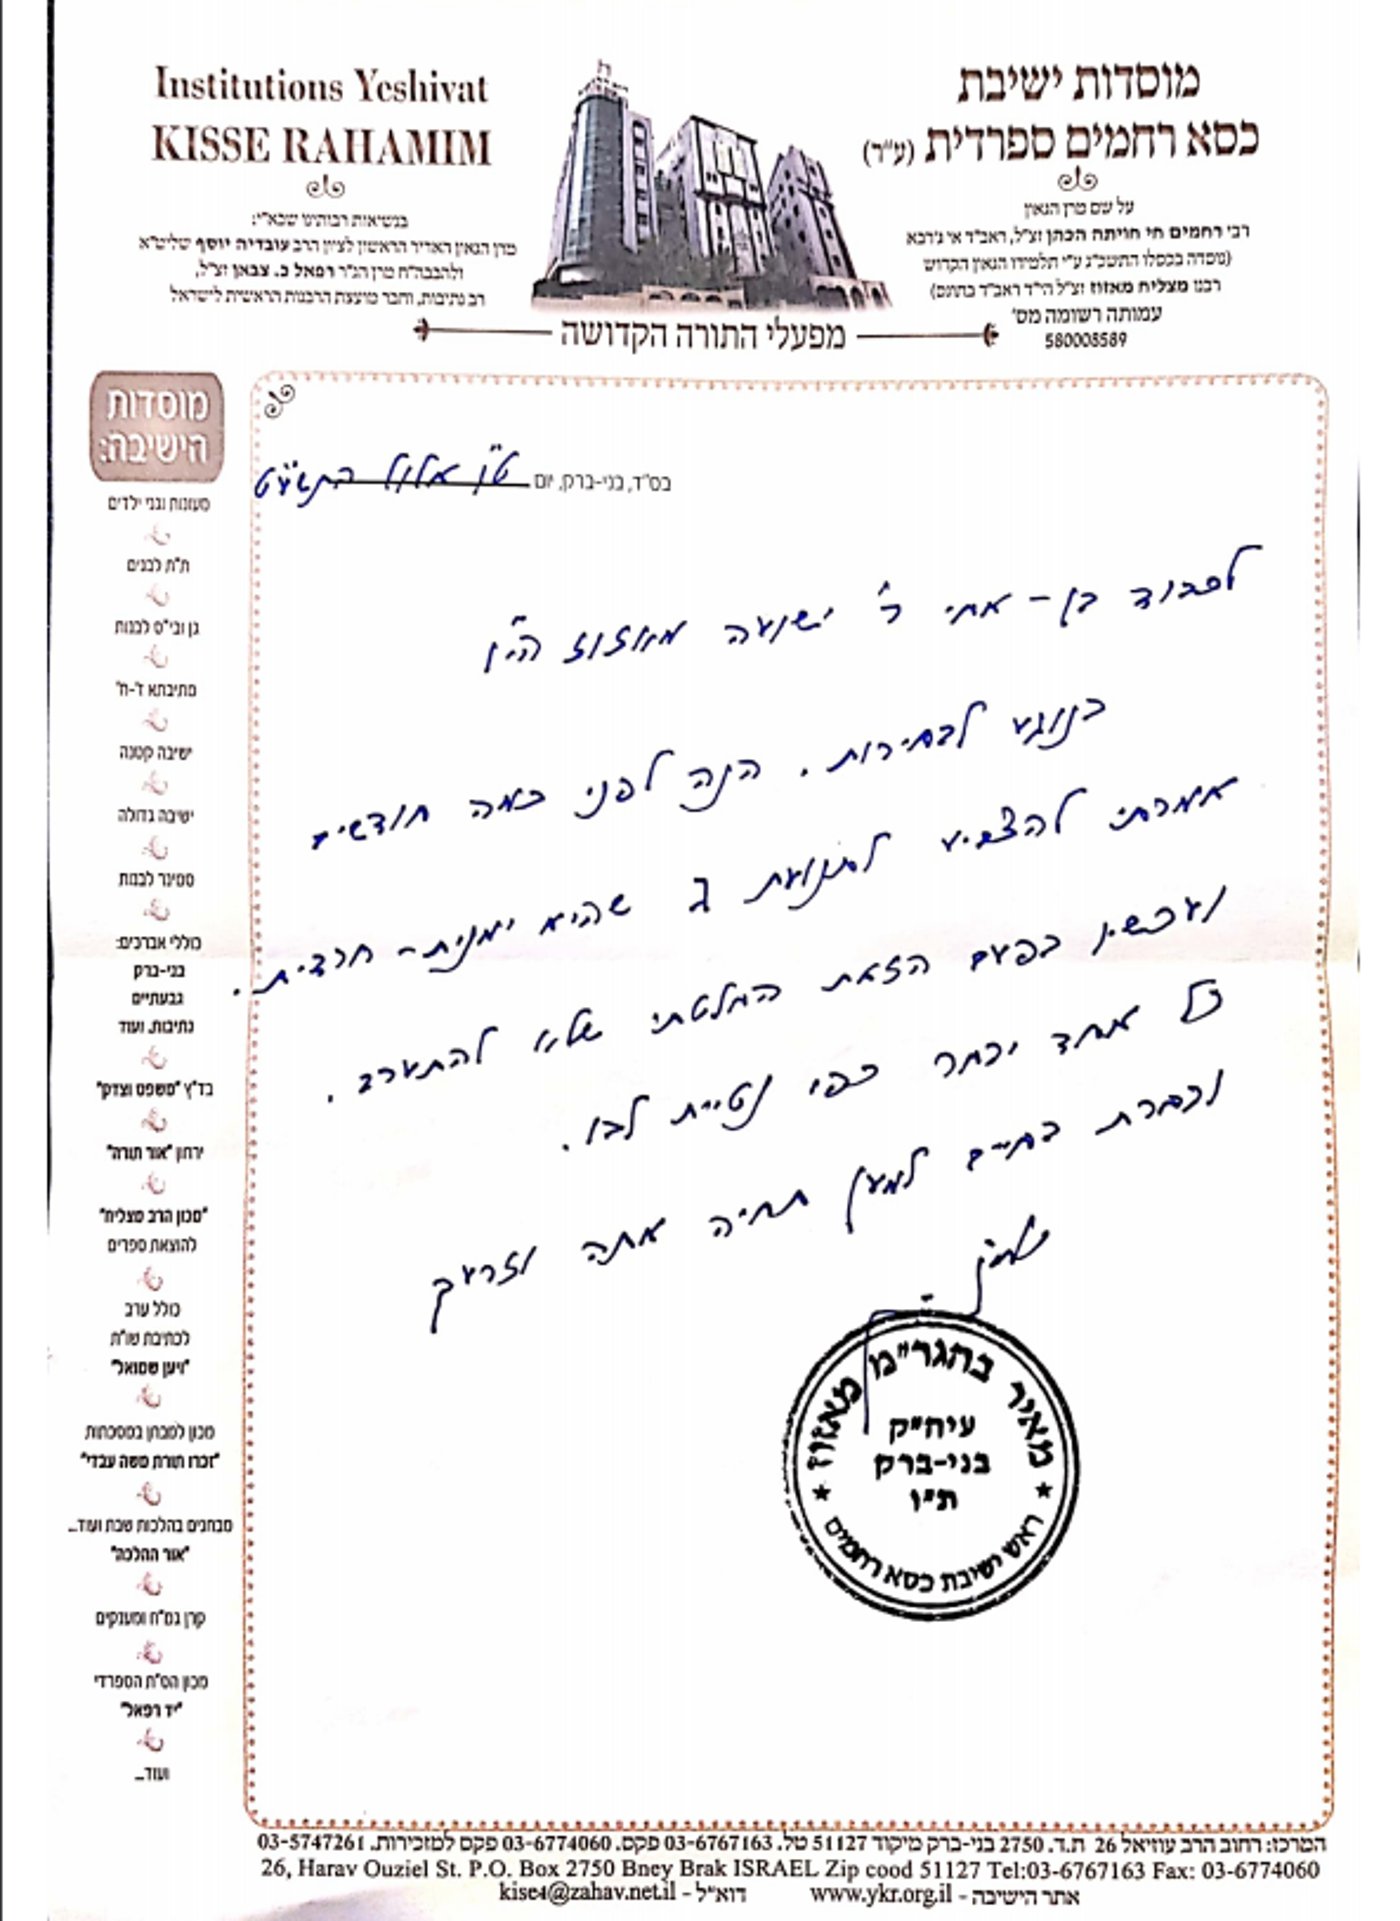 Institutions Yeshivat
KISSE RAHAMIM
בנשיאות רבותינו שבא"י:
מרן הגאון האדיר הראשון לציון הרב עובדיה יוסף שליט"א
ולהבבה"ח מרן הג"ר רפאל כ. צבאן זצ"ל,
רב נתיבות, וחבר מועצת הרבנות הראשית לישראל
מוסדות ישיבת
כסא רחמים ספרדית (ע"ר)
על שם מרן הגאון
רבי רחמים חי חויתה הכהן זצ"ל, ראב"ד אי ג'רבא
(נוסדה בכסלו התשכ"ג ע"י תלמידו הגאון הקדוש
רבנו מצליח מאזוז זצ"ל הי"ד ראב"ד בתונס)
עמותה רשומה מס'
580008589
מפעלי התורה הקדושה
מוסדות
הישיבה:
מעונות וגני ילדים
ת"ת לבנים
גן ובי"ס לבנות
מתיבתא ז'-ח'
ישיבה קטנה
ישיבה גדולה
סמינר לבנות
כוללי אברכים:
בני-ברק
גבעתיים
נתיבות. ועוד
בד"ץ "משפט וצדק"
ירחון "אור תורה"
"מכון הרב מצליח"
להוצאת ספרים
כולל ערב
לכתיבת שו"ת
"ויען שמואל"
מכון למבחן במסכתות
"זכרו תורת משה עבדי"
מבחנים בהלכות שבת ועוד...
"אור ההלכה"
קרן גמ"ח ומענקים
מכון הס"ת הספרדי
"יד רפאל"
ועוד...
בס"ד, בני-ברק, יום ט"ו אלול התשע"ט
לכבוד בן-אחי ר' ישועה מאזוז הי"ו
בנוגע לבחירות. הנה לפני כמה חודשים
אמרתי להצביע לתנועת ג שהיא ימנית-חרדית.
ועכשיו בפעם הזאת החלטתי שלא להתערב.
כל אחד יבחר כפי נטיית לבו.
ובחרת בחיים למען תחיה אתה וזרעך
מאיר בהגר"מ מאזוז
עיח"ק
בני-ברק
ת"ו
ראש ישיבת כסא רחמים
המרכז: רחוב הרב עוזיאל 26 ת.ד. 2750 בני-ברק מיקוד 51127 טל. 03-6767163 פקס. 03-6774060 פקס למזכירות. 03-5747261
26, Harav Ouziel St. P.O. Box 2750 Bney Brak ISRAEL Zip cood 51127 Tel:03-6767163 Fax: 03-6774060
אתר הישיבה - www.ykr.org.il דוא"ל - kise4@zahav.net.il